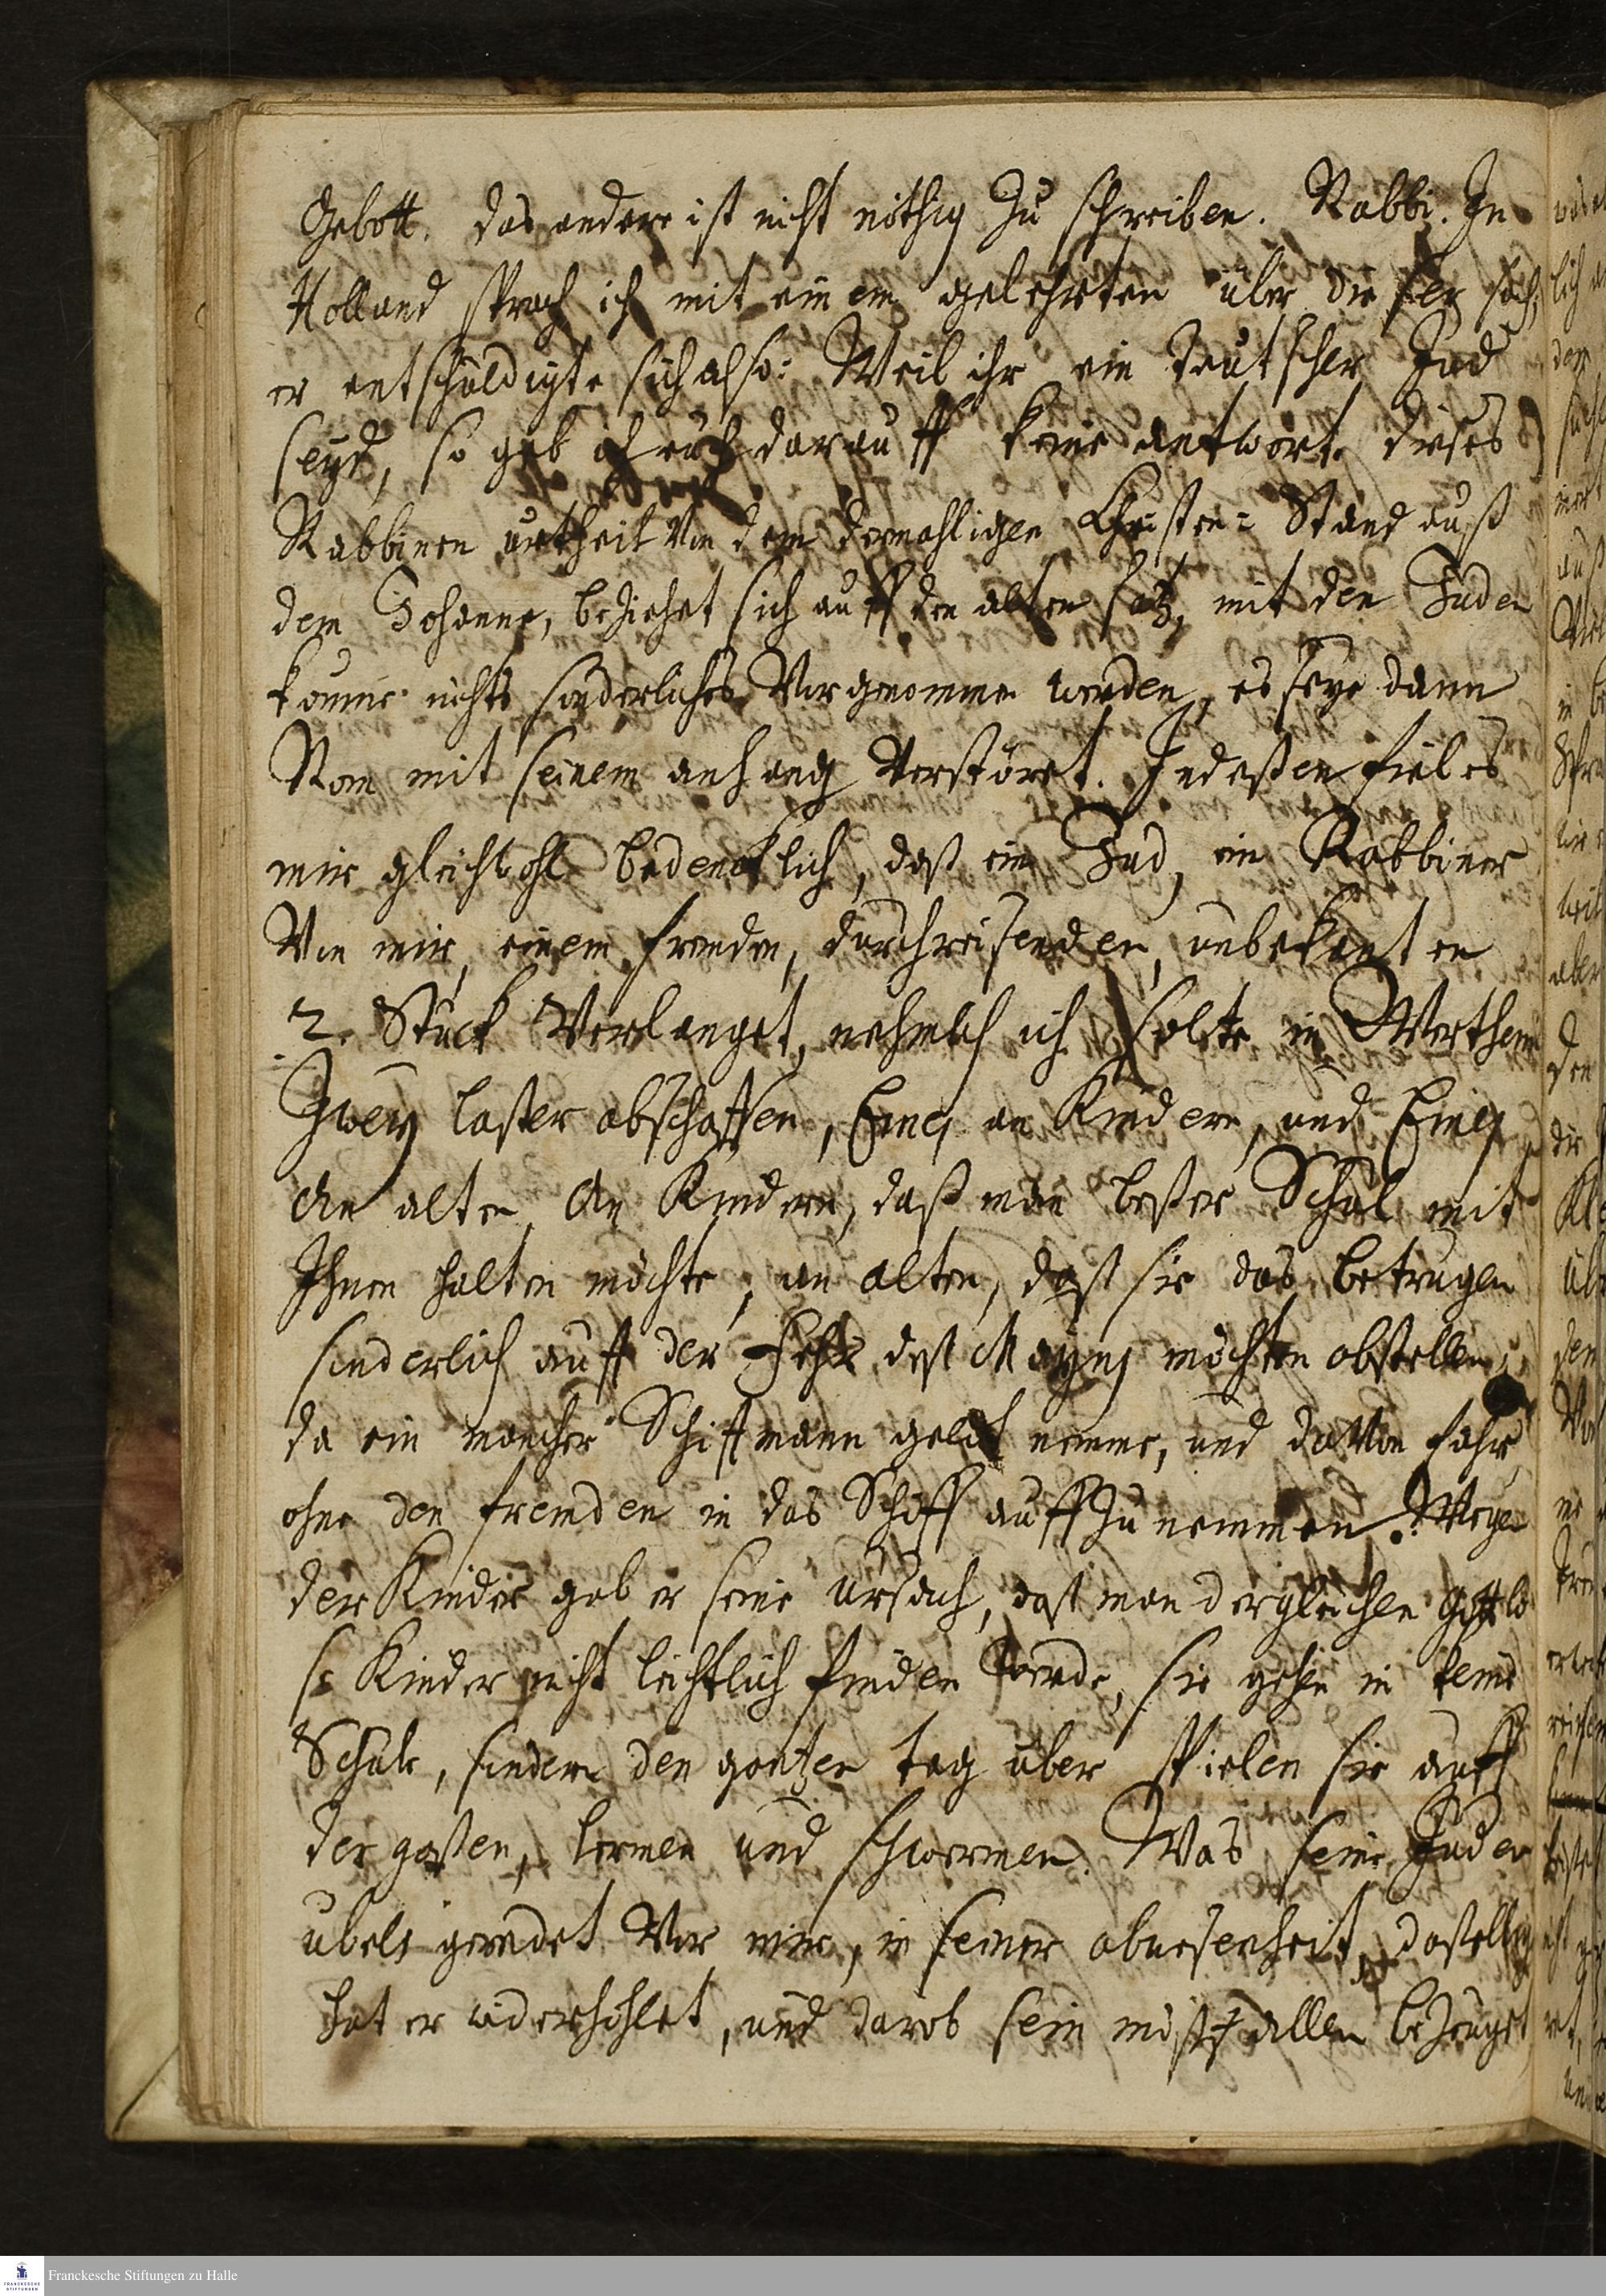 Gebott. das andere ist nicht nöthig zu schreiben. Rabbi. In
Holland sprach ich mit einem gelehrten über dießer sach,
er entschuldigte sich also: Weil ihr ein teutscher Jud
seyd, so geb ich euch darauff keine antwort. dieses
Rabbinen urtheil von dem dermahligen Christen-Stand auß
dem Johanne, beziehet sich auff den alten satz, mit den Juden
könne nichts sonderliches vorgenommen werden, es seye dann
Rom mit seinem anhang verstöret. Indeßen fiel es
mir gleichwohl bedencklich, daß ein Jud, ein Rabbiner
von mir, einem fremden, durchreisenden, unbekanten
2. Stuck verlanget, nehmlich ich solte in Wertheim
Zwey laster abschaffen, Eines an Kindern, und Eines
an alten. An Kindern, daß man beßer Schul mit
Ihnen halten möchte; an alten, daß sie das betrugen
sonderlich auff der deß Mayns möchten abstellen,
da ein mancher Schiffmann geld nemme, und davon fahre
ohne den fremden in das Schiff auffzunemmen. Wegen
der Kinder gab er seine ursach, daß man dergleichen gottlo
se Kinder nicht leichtlich finden werde, sie gehen in keine
Schule, sondern den gantzen tag über spielen sie auff
der gaßen, lermen und schwermen. Was seine Juden
übels geredet vor mir, in seiner abwesenheit, daßelbig
hat er widerhohlet, und darob sein mißfallen bezeuget
Franckesche Stiftungen zu Halle